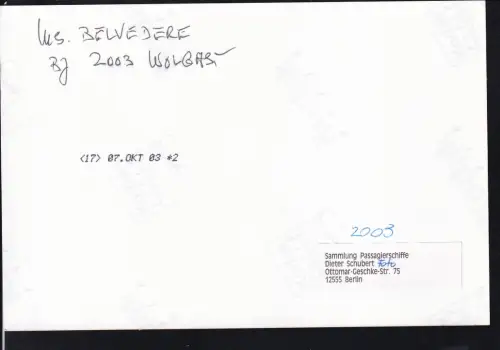 MS. BELVEDERE
Bj 2003 WOLGAST
<17> 07.OKT 03 #2
2003
Sammlung Passagierschiffe
Dieter Schubert Foto
Ottomar-Geschke-Str. 75
12555 Berlin